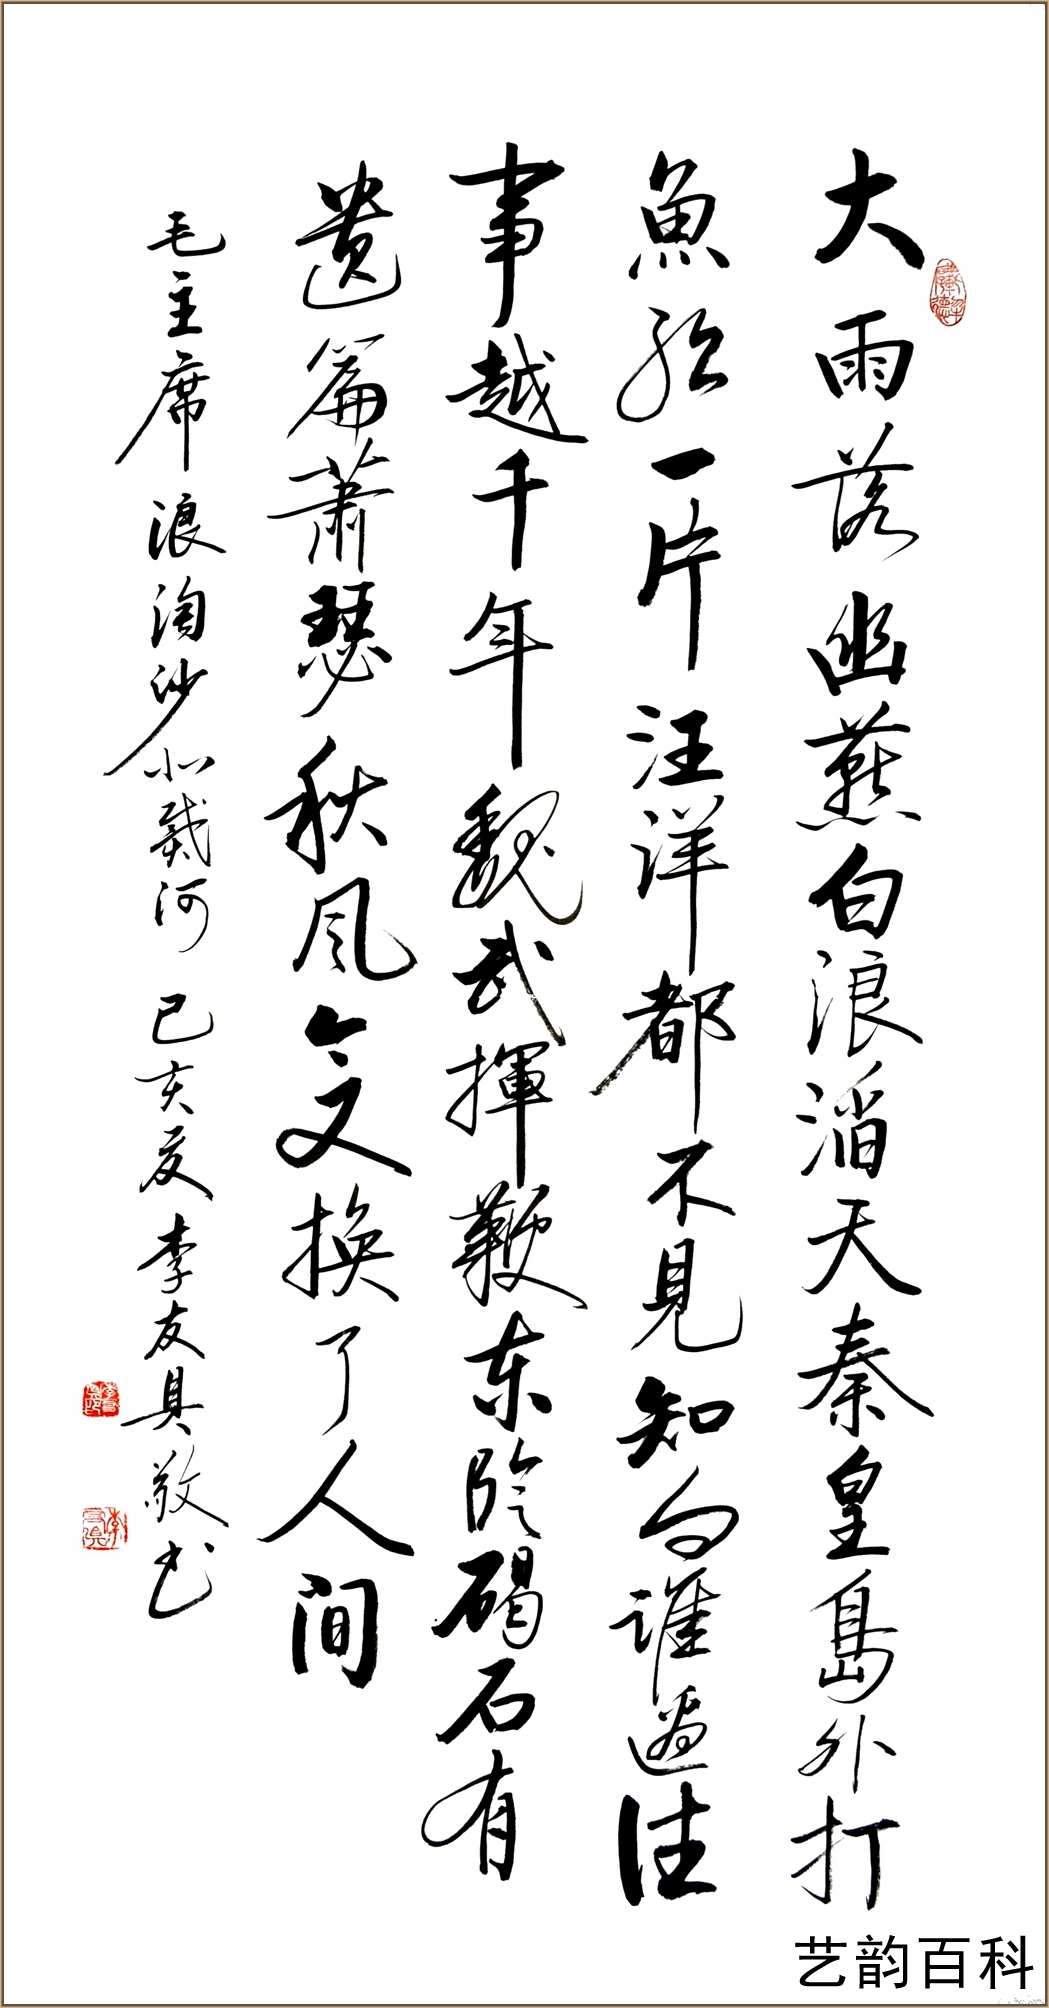 大雨落幽燕白浪滔天秦皇島外打
魚船一片汪洋都不見知向誰邊往
事越千年魏武揮鞭东临碣石有
遗篇萧瑟秋风今又换了人间
毛主席浪淘沙北戴河己亥夏李友具敬书
艺韵百科